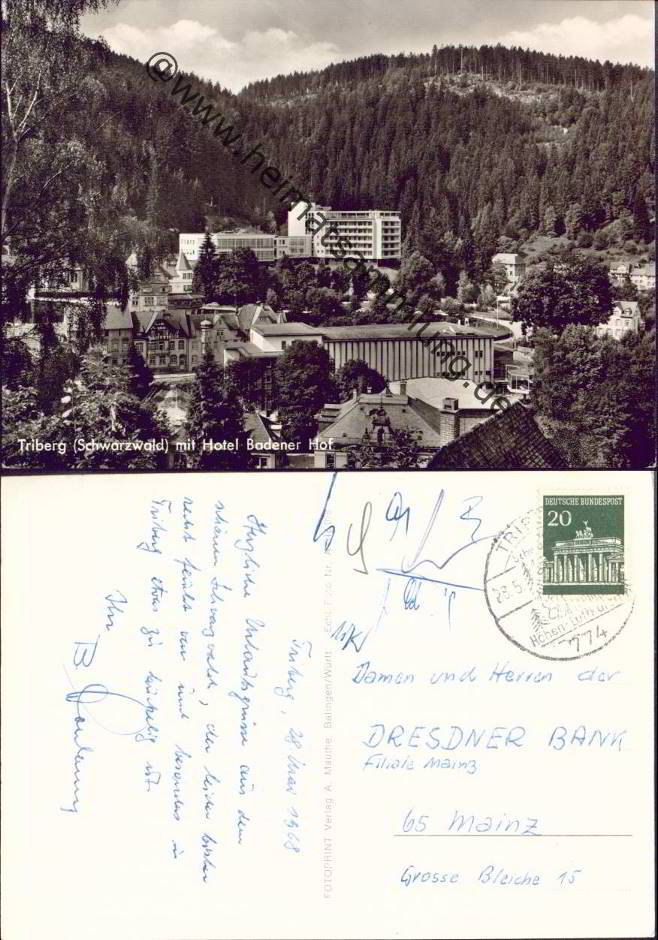 @www.heimatsammlung.de
Triberg (Schwarzwald) mit Hotel Badener Hof
Triberg, 28 Mai 1968
Herzliche Urlaubsgrüsse aus dem
schönen Schwarzwald, der leider bisher
recht feucht war und besonders in
Triberg etwas zu
ist.
Ihr
FOTOPRINT Verlag A. Mauthe Balingen/Württ. Foto Nr.
DEUTSCHE BUNDESPOST
20
TRIBERG
28.5.
Höhen-Luftkurort
774
Damen und Herren der
DRESDNER BANK
Filiale Mainz
65 Mainz
Grosse Bleiche 15